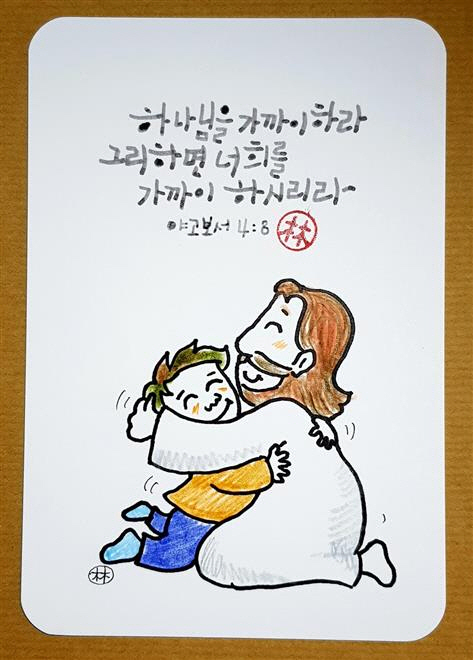 하나님을 가까이하라
그리하면 너희를
가까이 하시리라
야고보서 4:8 林
林